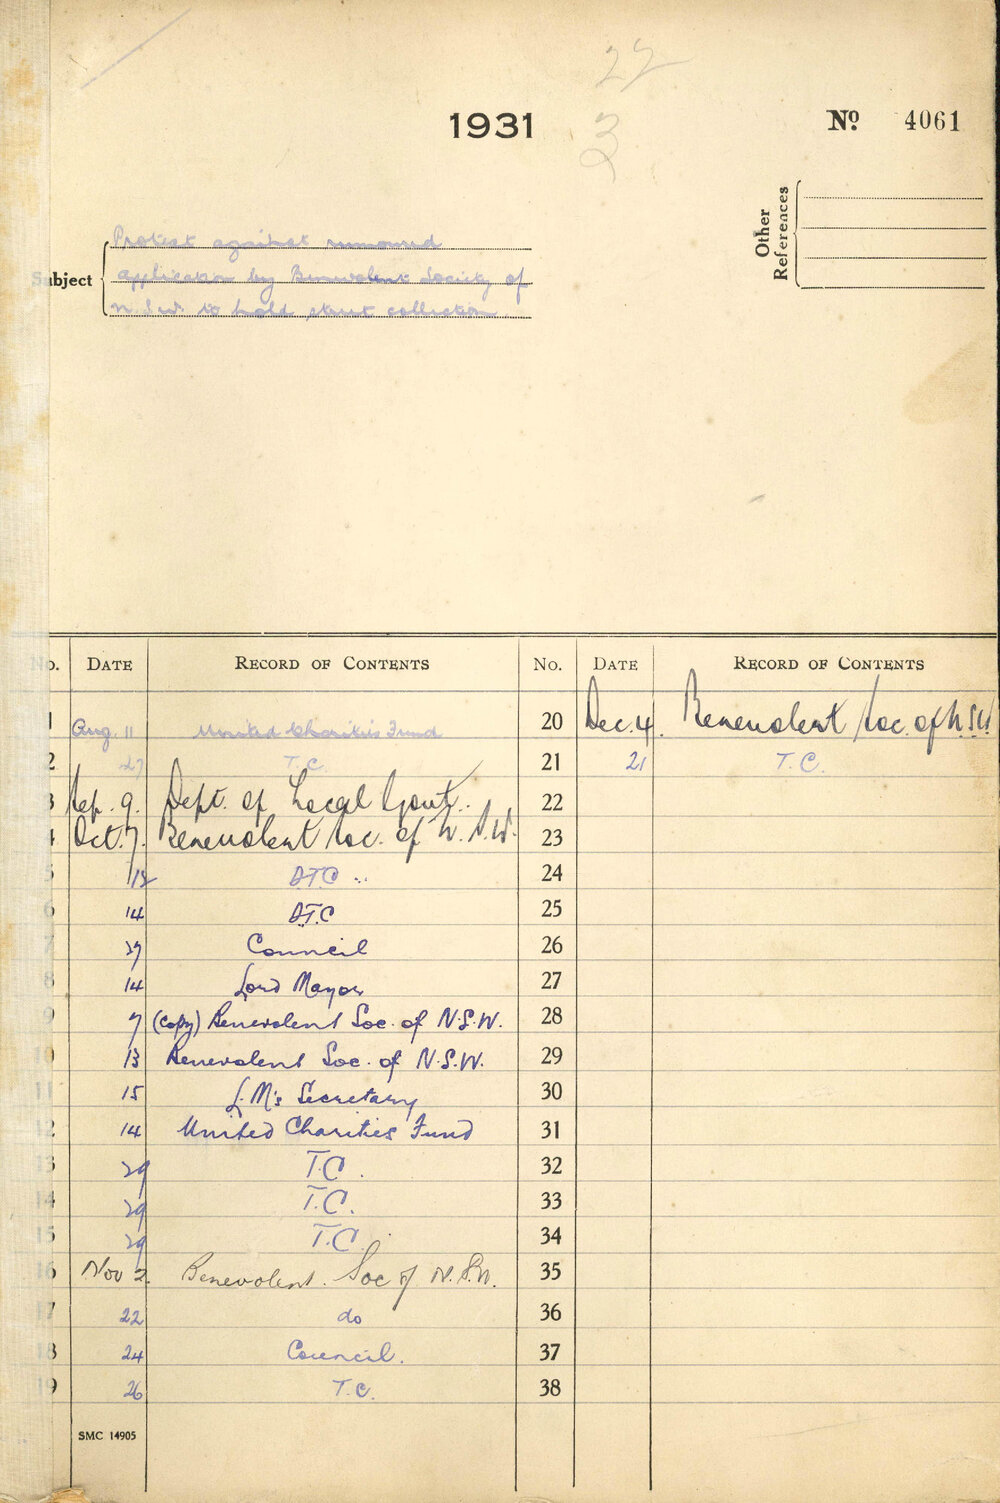 22
1931
3
No. 4061
Other References
Subject
Protest against rumoured
application by Benevolent Society of
N.S.W. to hold street collection
No. DATE RECORD OF CONTENTS No. DATE RECORD OF CONTENTS
1 Aug. 11 United Charities Fund 20 Dec. 4. Benevolent Soc. of N.S.W.
2 27 T.C. 21 21 T.C.
3 Sep. 9. Dept. of Local Govt. 22
4 Oct. 7. Benevolent Soc. of N.S.W. 23
5 12 D.T.C 24
6 14 D.T.C 25
7 27 Council 26
8 14 Lord Mayor 27
9 7 (copy) Benevolent Soc. of N.S.W. 28
10 13 Benevolent Soc. of N.S.W. 29
11 15 L.M's Secretary 30
12 14 United Charities Fund 31
13 29 T.C. 32
14 29 T.C. 33
15 29 T.C. 34
16 Nov 2. Benevolent. Soc of N.S.W. 35
17 22 do 36
18 24 Council. 37
19 26 T.C. 38
SMC 14905